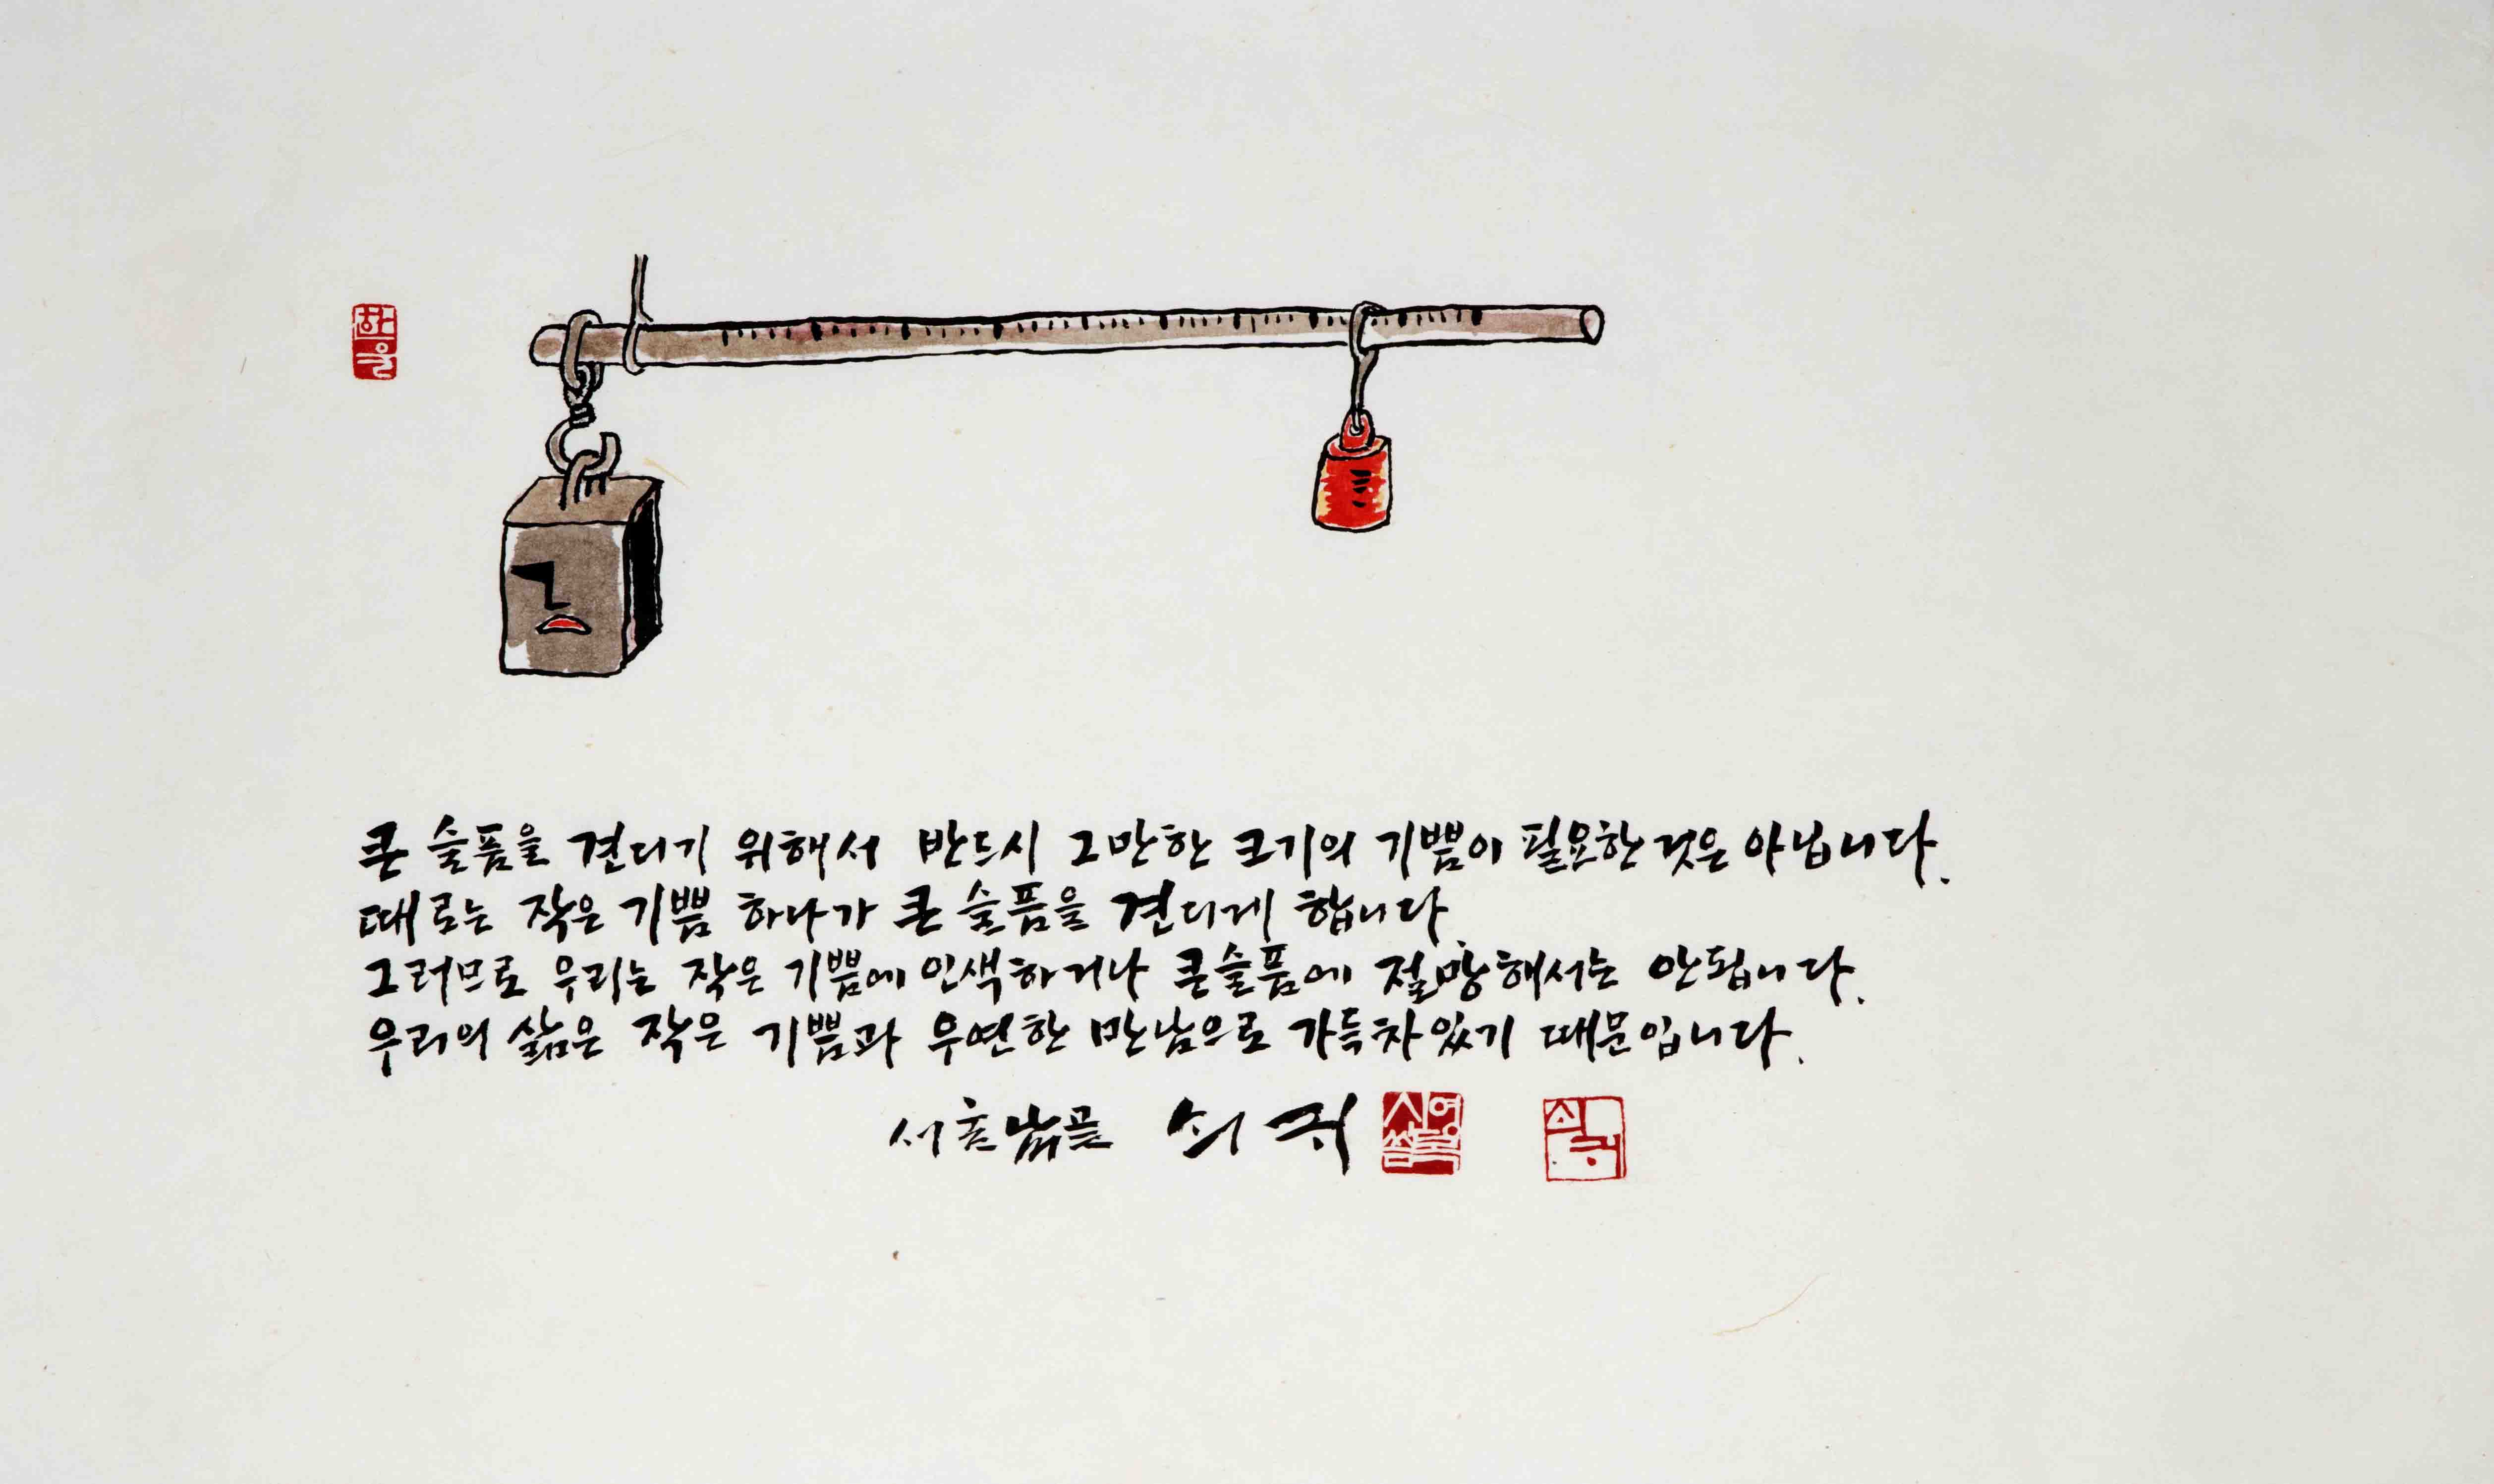 한울
큰 슬픔을 견디기 위해서 반드시 그만한 크기의 기쁨이 필요한 것은 아닙니다.
때로는 작은 기쁨 하나가 큰 슬픔을 견디게 합니다.
그러므로 우리는 작은 기쁨에 인색하거나 큰슬픔에 절망해서는 안됩니다.
우리의 삶은 작은 기쁨과 우연한 만남으로 가득차있기 때문입니다.
서촌 쇠귀 신영복
쇠귀